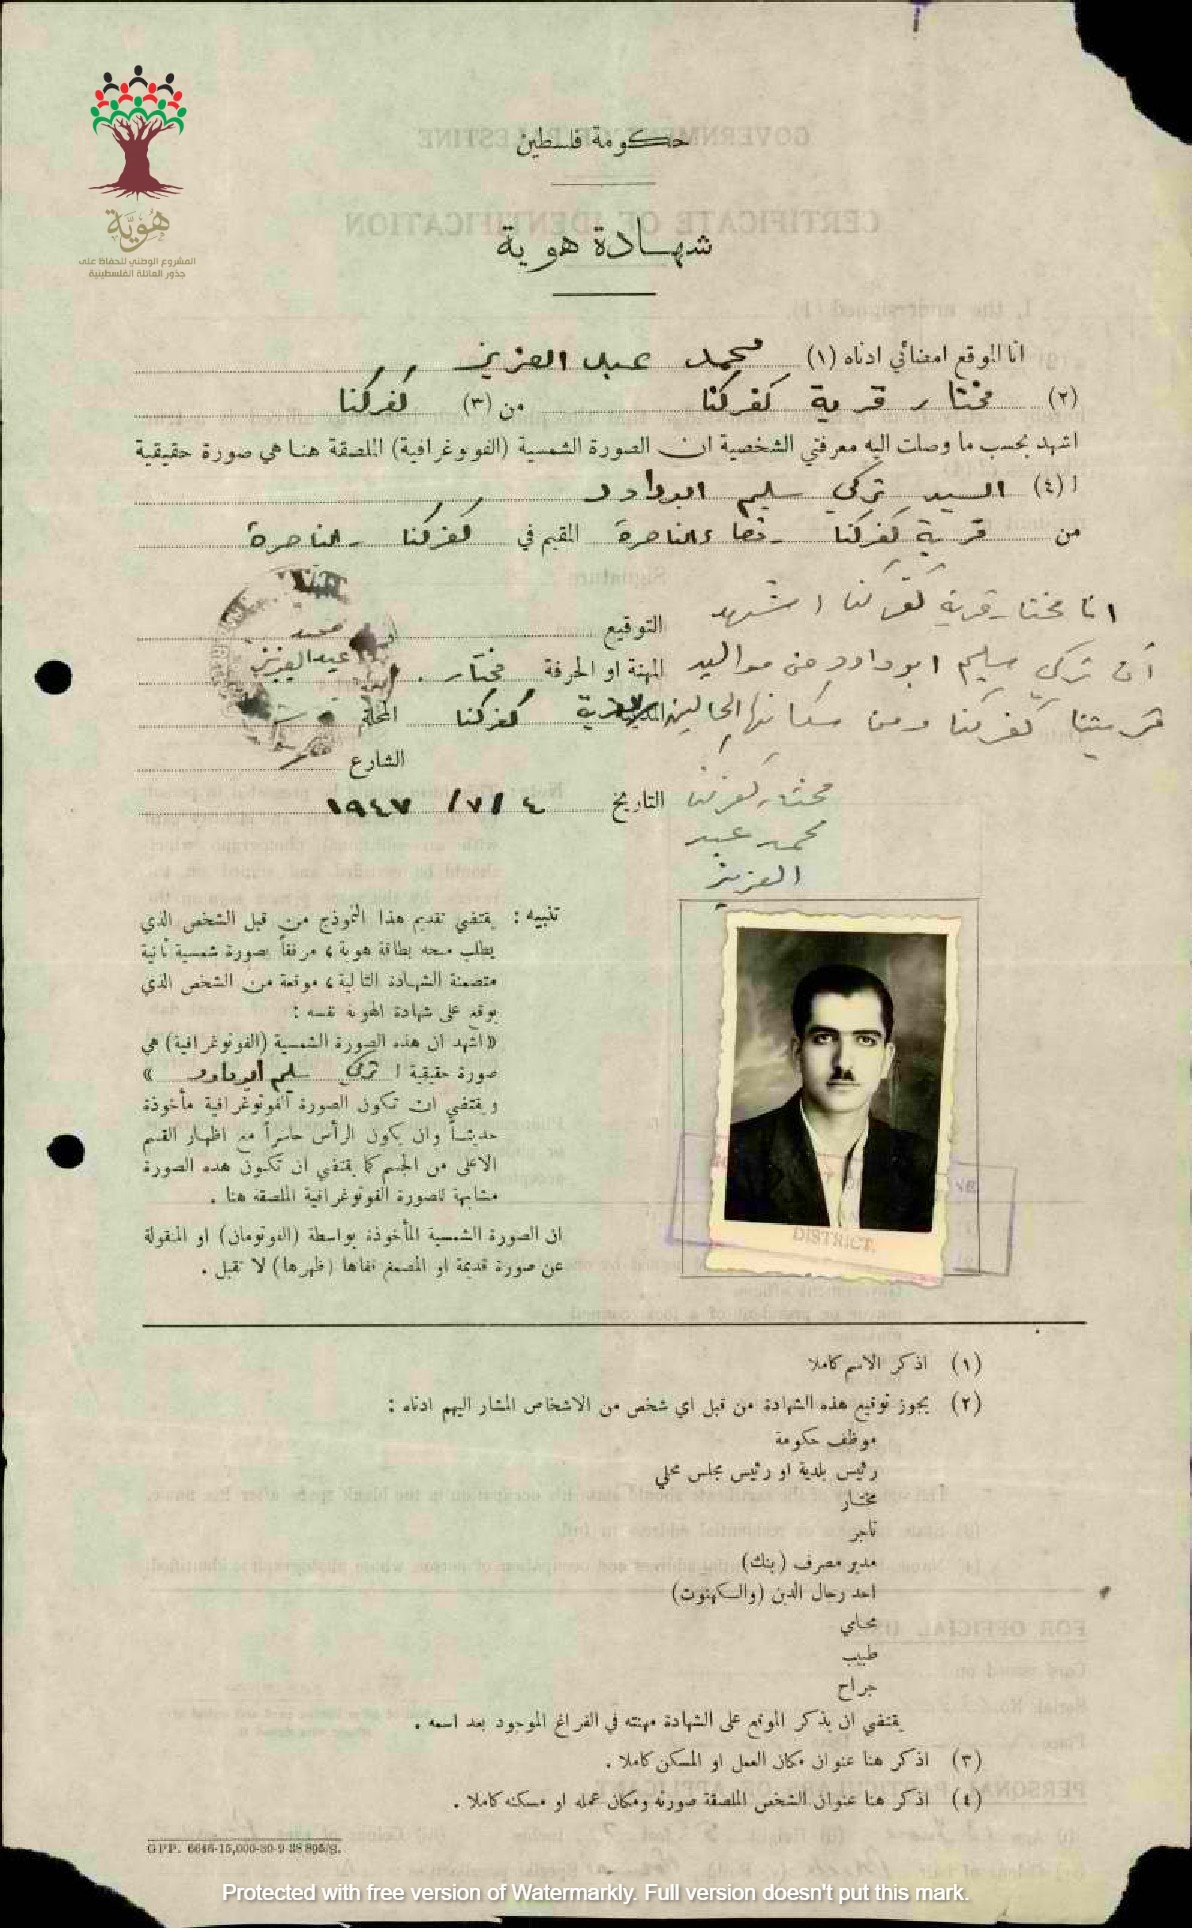 حكومة فلسطين
شهادة هوية
هُوِيَّة
المشروع الوطني للحفاظ على
جذور العائلة الفلسطينية
انا الموقع امضائي ادناه (١) محمد عبد العزيز
(٢) مختار قرية كفركنا من (٣) كفركنا
اشهد بحسب ما وصلت اليه معرفتي الشخصية ان الصورة الشمسية (الفوتوغرافية) الملصقة هنا هي صورة حقيقية
ا (٤) السيد تركي سليم ابو داود
من قرية كفركنا قضاء الناصرة المقيم في كفركنا - الناصرة
انا مختار قرية كفركنا اشهد
أن تركي سليم ابو داود من مواليد
قريتنا كفركنا ومن سكانها الحاليين
مختار كفركنا
محمد عبد
العزيز
التوقيع محمد
عبد العزيز
المهنة او الحرفة مختار
قرية كفركنا المحلة
الشارع
التاريخ ٤ /٧/ ١٩٤٧
تنبيه : يقتضي تقديم هذا النموذج من قبل الشخص الذي
يطلب منحه بطاقة هوية ، مرفقاً بصورة شمسية ثانية
متضمنة الشهادة التالية ، موقعة من الشخص الذي
يوقع على شهادة الهوية نفسه :
« اشهد ان هذه الصورة الشمسية (الفوتوغرافية) هي
صورة حقيقية ا تركي سليم ابو داود »
ويقتضي ان تكون الصورة الفوتوغرافية مأخوذة
حديثاً وان يكون الرأس حاسراً مع اظهار القسم
الاعلى من الجسم كما يقتضي ان تكون هذه الصورة
مشابهة للصورة الفوتوغرافية الملصقة هنا .
ان الصورة الشمسية المأخوذة بواسطة (الفوتومان) او المنقولة
عن صورة قديمة او المصمغ قفاها (ظهرها) لا تقبل .
DISTRICT.
(١) اذكر الاسم كاملا
(٢) يجوز توقيع هذه الشهادة من قبل اي شخص من الاشخاص المشار اليهم ادناه :
موظف حكومة
رئيس بلدية او رئيس مجلس محلي
مختار
تاجر
مدير مصرف (بنك)
احد رجال الدين (والكهنوت)
محامي
طبيب
جراح
يقتضي ان يذكر الموقع على الشهادة مهنته في الفراغ الموجود بعد اسمه .
(٣) اذكر هنا عنوان مكان العمل او المسكن كاملا .
(٤) اذكر هنا عنوان الشخص الملصقة صورته ومكان عمله او مسكنه كاملا .
GPP. 6646-15,000-30-9-38 895/S.
Protected with free version of Watermarkly. Full version doesn't put this mark.